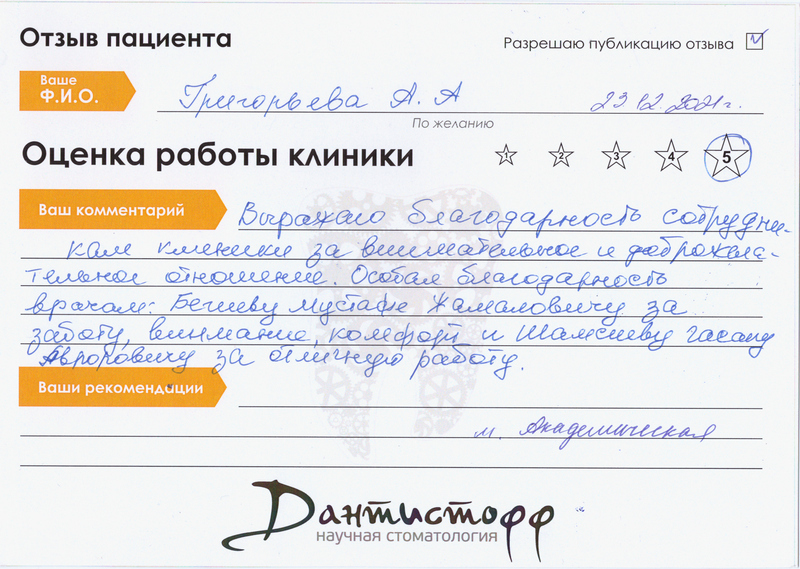 Отзыв пациента
Разрешаю публикацию отзыва
Ваше
Ф.И.О.
Григорьева А. А 23 12. 2021 г.
По желанию
Оценка работы клиники
1 2 3 4 5
Ваш комментарий
Выражаю благодарность сотрудни-
кам клиники за внимательное и доброжела-
тельное отношение. Особая благодарность
врачам: Бегиеву Мустафе Жамаловичу за
заботу, внимание, комфорт и Шамсиеву Гасану
Авроровичу за отличную работу.
Ваши рекомендации
м. Академическая
Дантистофф
научная стоматология